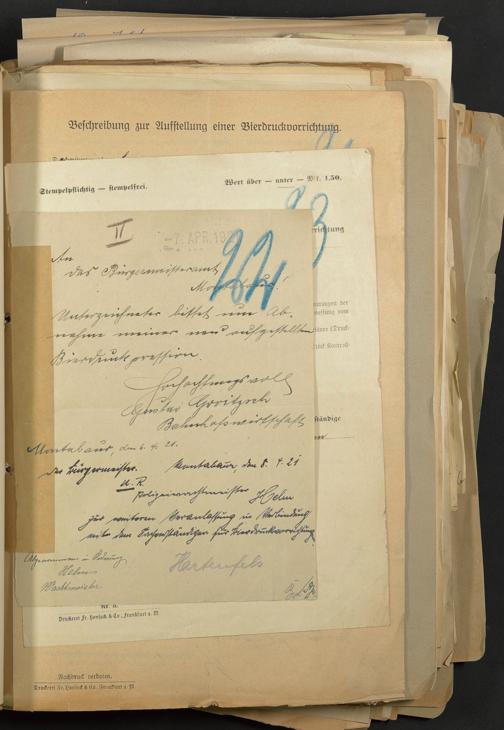 Beschreibung zur Aufstellung einer Bierdruckvorrichtung.
Stempelpflichtig — stempelfrei.
Wert über — unter — Mk. 1,50.
II
7. APR. 192
An
das Bürgermeisteramt
Montabaur!
Unterzeichneter bittet um Ab-
nahme meiner neu aufgestellten
Bierdruckpression.
Hochachtungsvoll
Gustav
Bahnhofswirtschaft
Montabaur, den 6. 4. 21.
Der Bürgermeister. Montabaur, den 8. 4. 21
u. R.
Polizeiwachtmeister Helm
zur weiteren Veranlassung in Verbindung
mit dem Sachverständigen für Bierdruckvorrichtung.
Abgenommen in Ordnung
Helm
Wachtmeister
Hartenfels
Nr. 8.
Druckerei Fr. Horlack & Co., Frankfurt a. M.
Nachdruck verboten.
Druckerei Fr. Horlack & Co. Frankfurt a. M.
richtung
mungen der
ständige